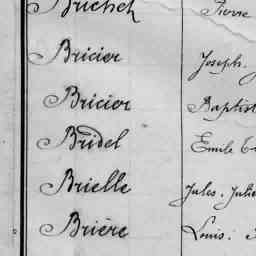 Brichet Pierre
Bricier Joseph.
Bricier Baptist
Bridel Emile
Brielle Jules. Julie
Brière Louis.